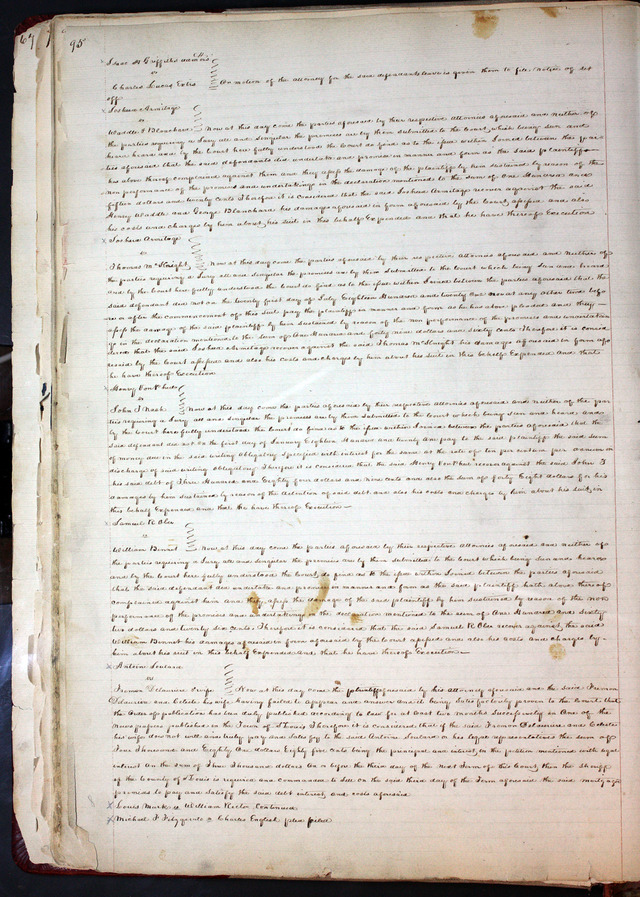 67
95
Isaac H Griffith's adminis
vs
Charles Lucas Exrs On motion of the attorney for the said defendants leave is given them to file notice of set
off
Joshua Armitage
vs
Waddle & Blanchard Now at this day come the parties aforesaid by their respective attornies aforesaid and neither of
the parties requiring a Jury all and singular the premises are by them submitted to the Court, which being seen and
heard and by the Court here fully understood the Court do find as to the issue within Joined between the par
ties aforesaid that the said defendants did undertake and promise in manner and form as the said plaintiff
has above thereof complained against them and they assess the damage of the plaintiff by him sustained by reason of the
non performance of the promises and undertakings in the declaration mentioned to the sum of One Hundred and
fifteen dollars and twenty Cents Therefore it is considered that the said Joshua Armitage recover against the said
Henry Waddle and George Blanchard his damages aforesaid in form aforesaid by the Court assessed and also
his costs and charges by him about his suit in this behalf Expended and that he have thereof Execution
Joshua Armitage
vs
Thomas McKnight Now at this day come the parties aforesaid by their respective attornies aforesaid and neither of
the parties requiring a Jury all and singular the premises are by them submitted to the Court which being seen and heard
and by the Court here fully understood the Court do find as to the issue within Joined between the parties aforesaid that the
said defendant did not on the twenty first day of July Eighteen Hundred and twenty but nor at any other time befo
re or after the commencement of this suit pay the plaintiff in manner and form as he has above pleaded and they
assess the damage of the said plaintiff by him sustained by reason of the non performance of the promises and undertakin
gs in the declaration mentioned to the sum of One Hundred and fifty nine dollars and sixty cents Therefore it is consid
ered that the said Joshua Armitage recover against the said Thomas McKnight his damages aforesaid in form afo
resaid by the Court assessed and also his costs and charges by him about his suit in this behalf Expended and that
he have thereof Execution
Henry Von Phul
vs
John T Nash Now at this day come the parties aforesaid by their respective attornies aforesaid and neither of the par
ties requiring a Jury all and singular the premises are by them submitted to the Court which being seen and heard and
by the Court here fully understood the Court do find as to the issue within Joined between the parties aforesaid that the
said defendant did not on the first day of January Eighteen Hundred and twenty one pay to the said plaintiff the said sum
of money due in the said writing obligatory specified with interest for the same at the rate of ten per centum per annum in
discharge of said writing obligatory Therefore it is considered that the said Henry Von Phul recover against the said John T
his said debt of Three Hundred and Eighty four dollars and nine cents and also the sum of forty Eight dollars for his
damages by him sustained by reason of the detention of said debt and also his costs and charges by him about his suit, in
this behalf Expended and that he have thereof Execution
Samuel R Ober
vs
William Binnet Now at this day come the parties aforesaid by their respective attornies aforesaid and neither of
the parties requiring a Jury all and singular the premises are by them submitted to the Court which being seen and heard
and by the Court here fully understood the Court, do find as to the issue within Joined between the parties aforesaid
that the said defendant did undertake and promise in manner and form as the said plaintiff hath above thereof
complained against him and they assess the damage of the said plaintiff by him sustained by reason of the non
performance of the promises and undertakings in the declaration mentioned to the sum of One Hundred and sixty
two dollars and twenty six cents Therefore it is considered that the said Samuel R Ober recover against the said
William Binnet his damages aforesaid in form aforesaid by the Court assessed and also his costs and charges by
him about his suit in this behalf Expended and that he have thereof Execution
Antoine Soulard
vs
Frenon Delaurier & wife Now at this day come the plaintiff aforesaid by his attorney aforesaid and the said Frenon
Delaurier and Celeste his wife having failed to appear and answer and it being satisfactorily proven to the Court that
the order of publication has been duly published according to law for at least two months successively in one of the
newspapers published in the Town of St Louis Therefore it is considered that if the said Frenon Delaurier and Celeste
his wife does not will and truly pay and satisfy to the said Antoine Soulard or his legal representatives the sum of
Four Thousand and Eighty one dollars Eighty five cents being the principal and interest in the petition mentioned with legal
interest on the sum of Three Thousand dollars on or before the third day of the next Term of this Court, then the Sheriff
of the County of St Louis is required and commanded to sell on the said third day of the Term aforesaid the said mortgaged
premises to pay and satisfy the said debt interest, and costs aforesaid
Louis Mark vs William Rector Continued
Michael F Fitzgerald vs Charles English plea filed